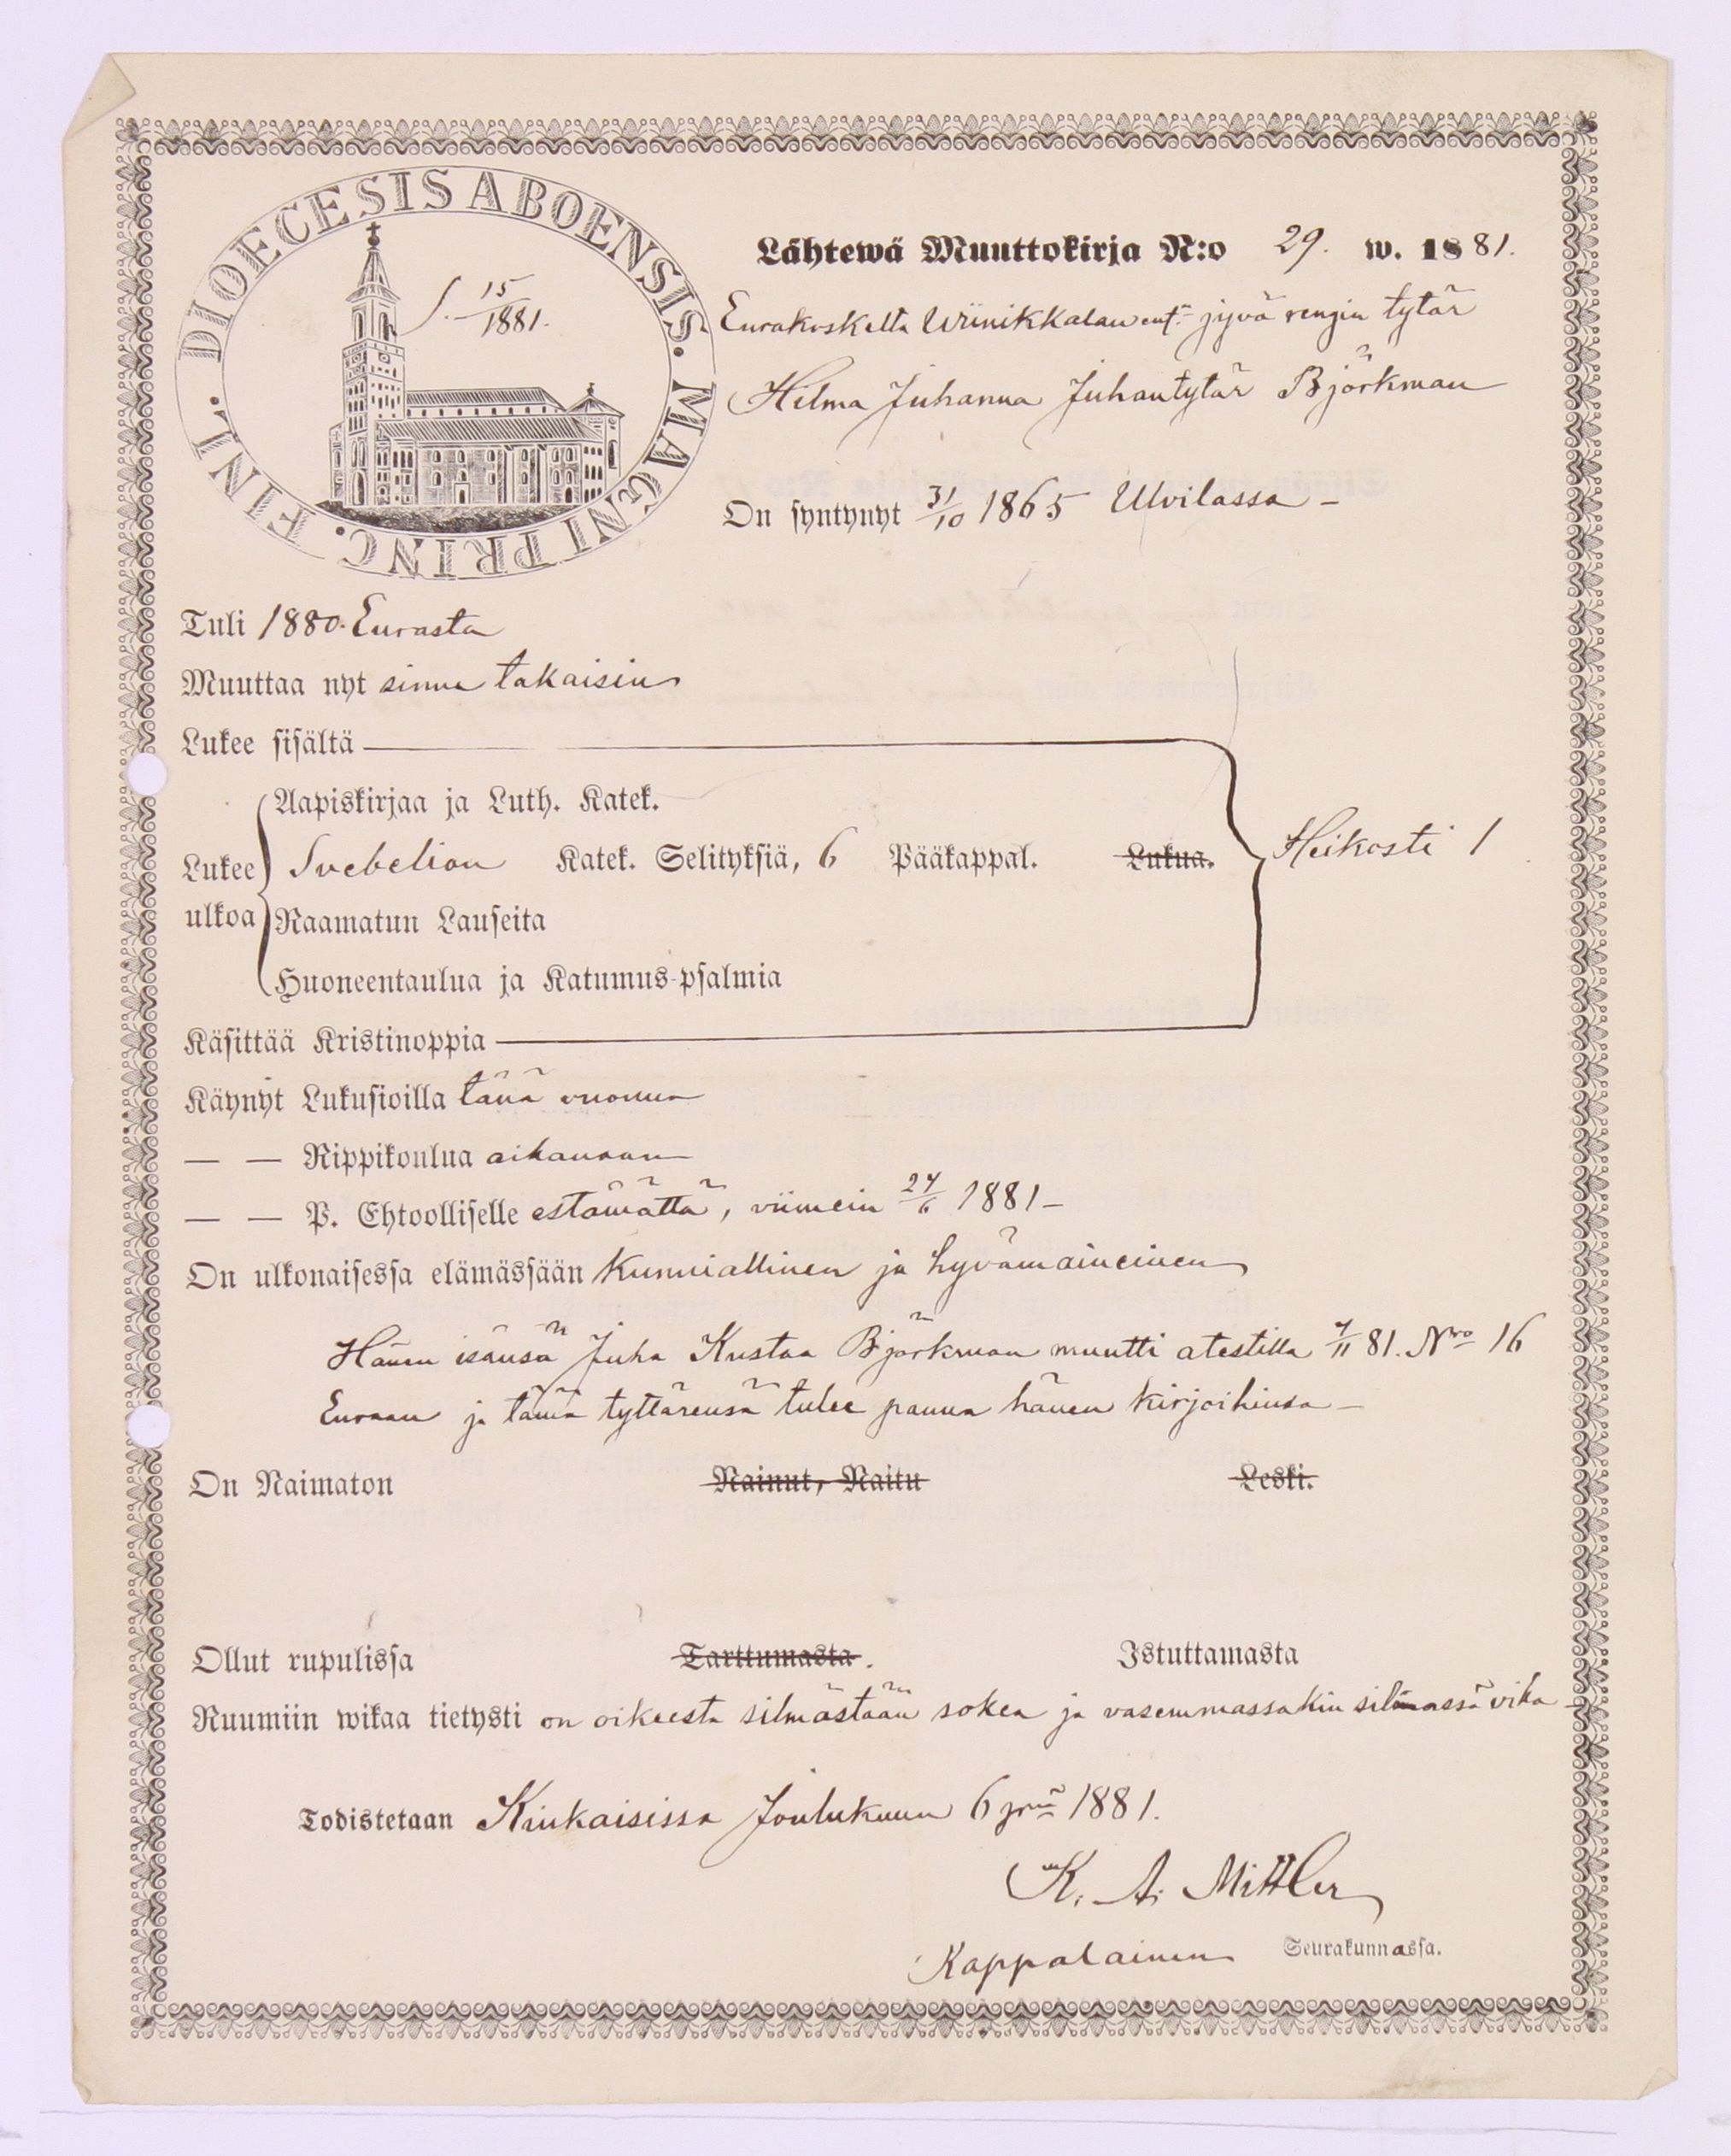 DIOECESIS ABOENSIS. MAGNI PRINC. FINL.
S. 15/1881.
Lähtewä Muuttokirja N:o 29. w. 1881.
Eurakoskelta Wiinikkalan ent. jyvä rengin tytär
Hilma Juhanna Juhantytär Björkman
On syntynyt 31/10 1865 Ulvilassa –
Tuli 1880. Eurasta
Muuttaa nyt sinne takaisin
Lukee sisältä
Aapiskirjaa ja Luth. Katek.
Lukee ulkoa Svebelion Katek. Selityksiä, 6 Pääkappal. Lukua. Heikosti 1
Raamatun Lauseita
Huoneentaulua ja Katumus-psalmia
Käsittää Kristinoppia
Käynyt Lukusioilla tänä vuonna
— — Rippikoulua aikanaan
— — P. Ehtoolliselle estämättä, viimein 24/6 1881 –
On ulkonaisessa elämässään kunniallinen ja hyvämaineinen
Hänen isänsä Juha Kustaa Björkman muutti atestilla 7/11 81. Nro 16
Euraan ja tämä tyttärensä tulee panna hänen kirjoihinsa –
On Naimaton Nainut, Naitu Leski.
Ollut rupulissa Tarttumasta. Istuttamasta
Ruumiin wikaa tietysti on oikeesta silmästään sokea ja vasemmassakin silmässä vika
Todistetaan Kiukaisissa Joulukuun 6 pnä 1881.
K. A. Mittler
Kappalainen Seurakunnassa.